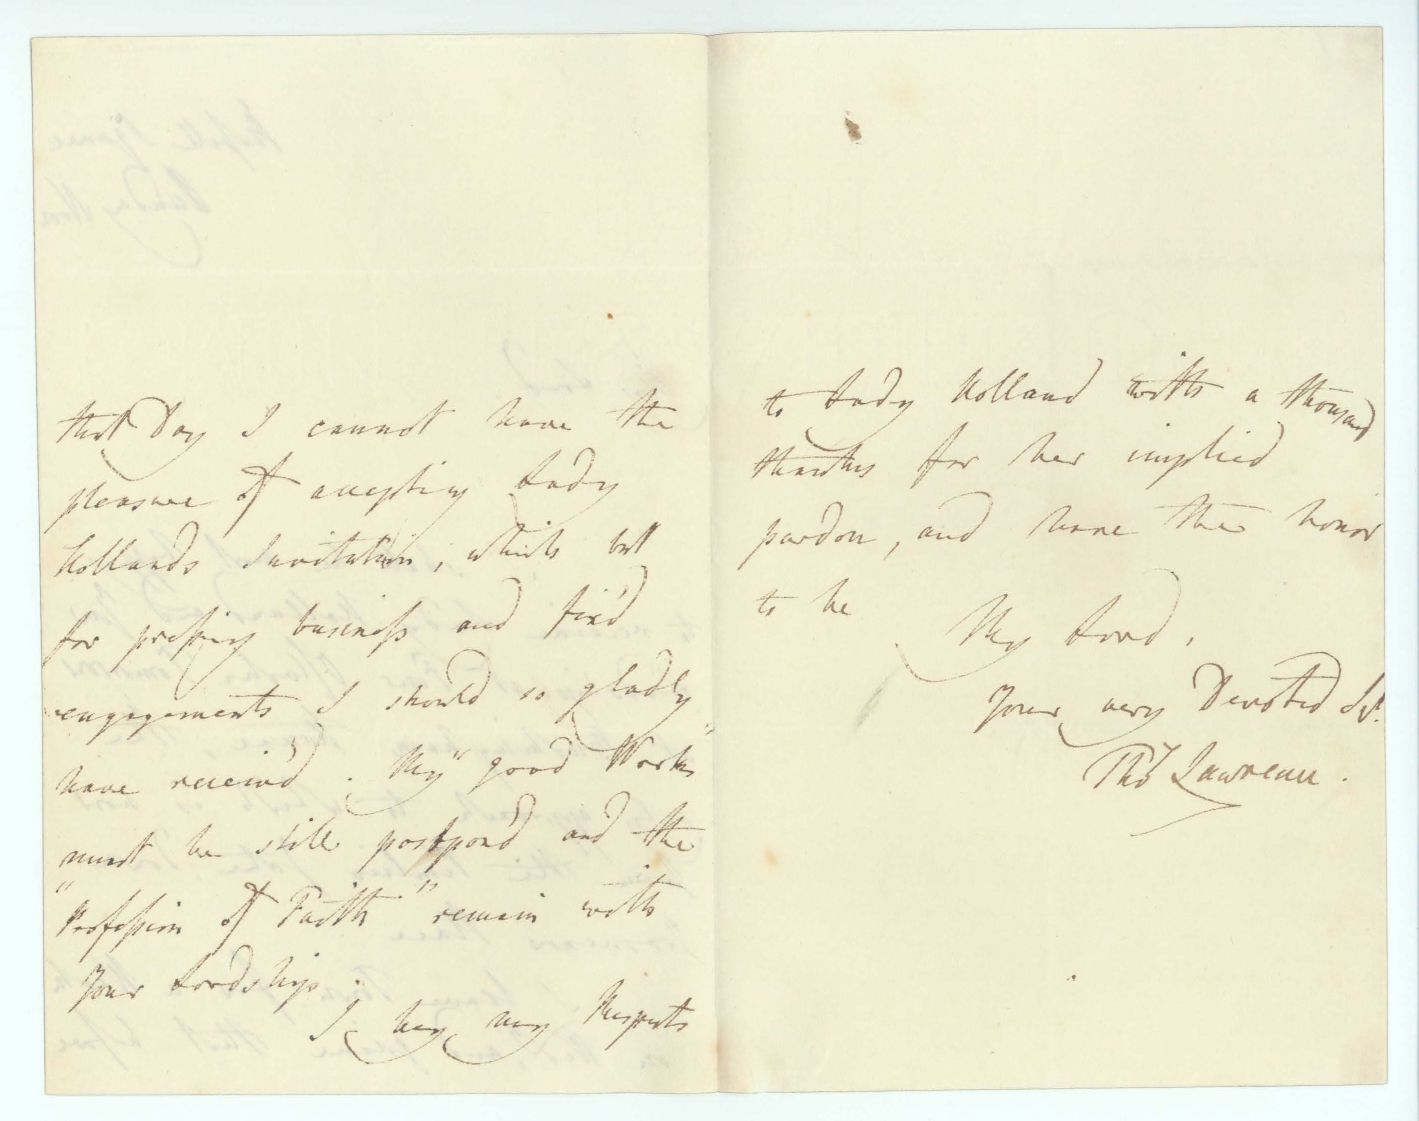 that Day I cannot have the
pleasure of accepting Lady
Hollands Invitation, which but
for pressing business and fix'd
engagements I should so gladly
have receiv'd. My "good Works"
must be still postpon'd and the
"Profession of Faith" remain with
your Lordship.
I beg my Respects
to Lady Holland with a thousand
thanks for her implied
pardon, and have the honor
to be
My Lord,
Your very Devoted St.
Thos Lawrence.